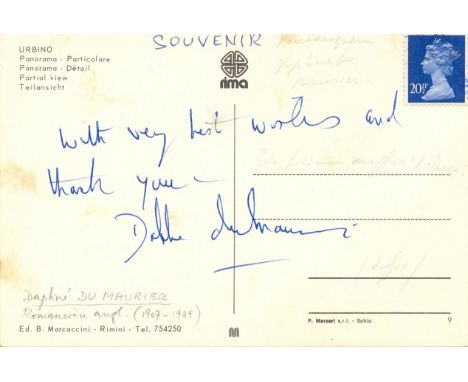 SOUVENIR
URBINO
Panorama - Particolare
Panorama - Détail
Partial view
Teilansicht
rima
20½P
With very best wishes and
thank you -
Daphne du Maurier
Daphné DU MAURIER
Romancière angl. (1907-1989)
Ed. B. Marcaccini - Rimini - Tel. 754250
P. Marzari s.r.l. - Schio
9